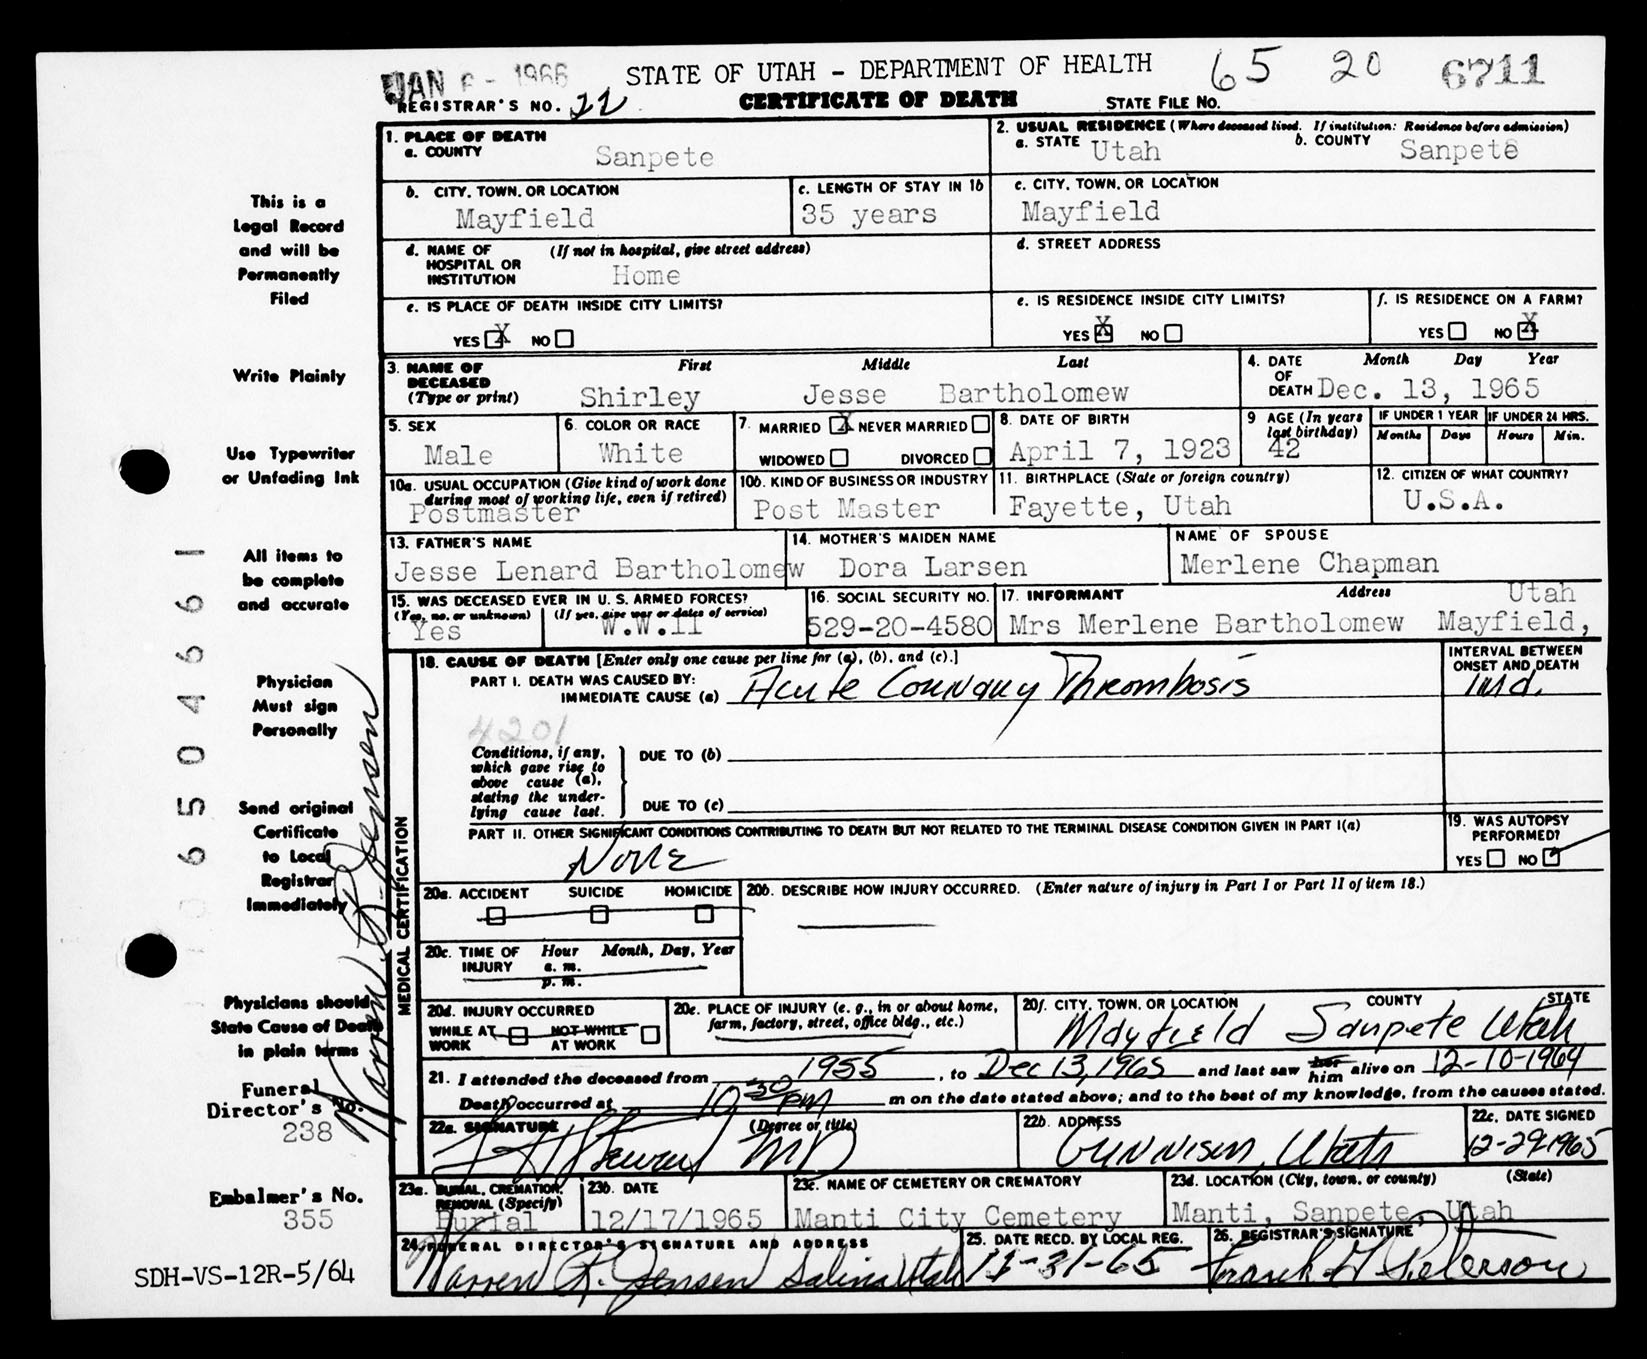 JAN 6 - 1966 STATE OF UTAH - DEPARTMENT OF HEALTH 65 20 6711
REGISTRAR'S NO. 22 CERTIFICATE OF DEATH STATE FILE NO.
1. PLACE OF DEATH
a. COUNTY Sanpete
2. USUAL RESIDENCE (Where deceased lived. If institution: Residence before admission)
a. STATE Utah b. COUNTY Sanpete
b. CITY, TOWN, OR LOCATION
Mayfield
c. LENGTH OF STAY IN 1b
35 years
c. CITY, TOWN, OR LOCATION
Mayfield
d. NAME OF (If not in hospital, give street address)
HOSPITAL OR
INSTITUTION Home
d. STREET ADDRESS
e. IS PLACE OF DEATH INSIDE CITY LIMITS?
YES X NO
e. IS RESIDENCE INSIDE CITY LIMITS?
YES X NO
f. IS RESIDENCE ON A FARM?
YES NO X
3. NAME OF First Middle Last
DECEASED
(Type or print) Shirley Jesse Bartholomew
4. DATE Month Day Year
OF
DEATH Dec. 13, 1965
5. SEX
Male
6. COLOR OR RACE
White
7. MARRIED X NEVER MARRIED
WIDOWED DIVORCED
8. DATE OF BIRTH
April 7, 1923
9 AGE (In years
last birthday)
42
IF UNDER 1 YEAR
Months Days
IF UNDER 24 HRS.
Hours Min.
10a. USUAL OCCUPATION (Give kind of work done
during most of working life, even if retired)
Postmaster
10b. KIND OF BUSINESS OR INDUSTRY
Post Master
11. BIRTHPLACE (State or foreign country)
Fayette, Utah
12. CITIZEN OF WHAT COUNTRY?
U.S.A.
13. FATHER'S NAME
Jesse Lenard Bartholomew
14. MOTHER'S MAIDEN NAME
Dora Larsen
NAME OF SPOUSE
Merlene Chapman
15. WAS DECEASED EVER IN U. S. ARMED FORCES?
(Yes, no, or unknown) (If yes, give war or dates of service)
Yes W.W.II
16. SOCIAL SECURITY NO.
529-20-4580
17. INFORMANT Address Utah
Mrs Merlene Bartholomew Mayfield,
MEDICAL CERTIFICATION
18. CAUSE OF DEATH [Enter only one cause per line for (a), (b), and (c).]
PART I. DEATH WAS CAUSED BY:
IMMEDIATE CAUSE (a) Acute Coronary Thrombosis
INTERVAL BETWEEN
ONSET AND DEATH
4201
Conditions, if any,
which gave rise to
above cause (a),
stating the under-
lying cause last.
DUE TO (b)
DUE TO (c)
PART II. OTHER SIGNIFICANT CONDITIONS CONTRIBUTING TO DEATH BUT NOT RELATED TO THE TERMINAL DISEASE CONDITION GIVEN IN PART I(a)
None
19. WAS AUTOPSY
PERFORMED?
YES NO
20a. ACCIDENT SUICIDE HOMICIDE
20b. DESCRIBE HOW INJURY OCCURRED. (Enter nature of injury in Part I or Part II of item 18.)
20c. TIME OF Hour Month, Day, Year
INJURY a. m.
p. m.
20d. INJURY OCCURRED
WHILE AT NOT WHILE
WORK AT WORK
20e. PLACE OF INJURY (e. g., in or about home,
farm, factory, street, office bldg., etc.)
20f. CITY, TOWN, OR LOCATION COUNTY STATE
Mayfield Sanpete Utah
21. I attended the deceased from 1955, to Dec 13, 1965 and last saw her him alive on 12-10-1964
Death occurred at 10 30 PM m on the date stated above; and to the best of my knowledge, from the causes stated.
22a. SIGNATURE (Degree or title)
MD
22b. ADDRESS
Gunnison, Utah
22c. DATE SIGNED
12-29-1965
23a. BURIAL, CREMATION,
REMOVAL (Specify)
Burial
23b. DATE
12/17/1965
23c. NAME OF CEMETERY OR CREMATORY
Manti City Cemetery
23d. LOCATION (City, town, or county) (State)
Manti, Sanpete, Utah
24. FUNERAL DIRECTOR'S SIGNATURE AND ADDRESS
Warren R. Jensen Salina Utah
25. DATE RECD. BY LOCAL REG.
26. REGISTRAR'S SIGNATURE
Frank G Peterson
This is a
Legal Record
and will be
Permanently
Filed
Write Plainly
Use Typewriter
or Unfading Ink
All items to
be complete
and accurate
Physician
Must sign
Personally
Send original
Certificate
to Local
Registrar
Immediately
Physicians should
State Cause of Death
in plain terms
Funeral
Director's No.
238
Embalmer's No.
355
SDH-VS-12R-5/64
Warren R. Jensen